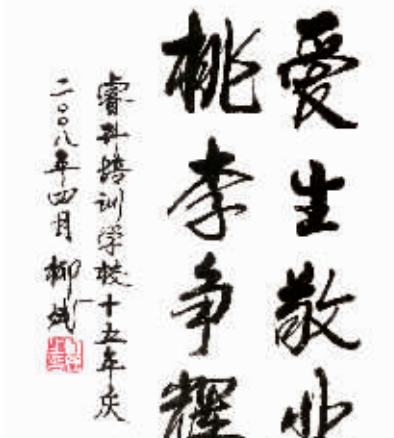 爱生敬业
桃李争耀
睿科培训学校十五年庆
二〇〇八年四月 柳斌